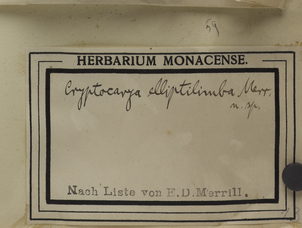 59
HERBARIUM MONACENSE.
Cryptocarya elliptilimba Merr.
n. sp.
Nach Liste von E.D.Merrill.